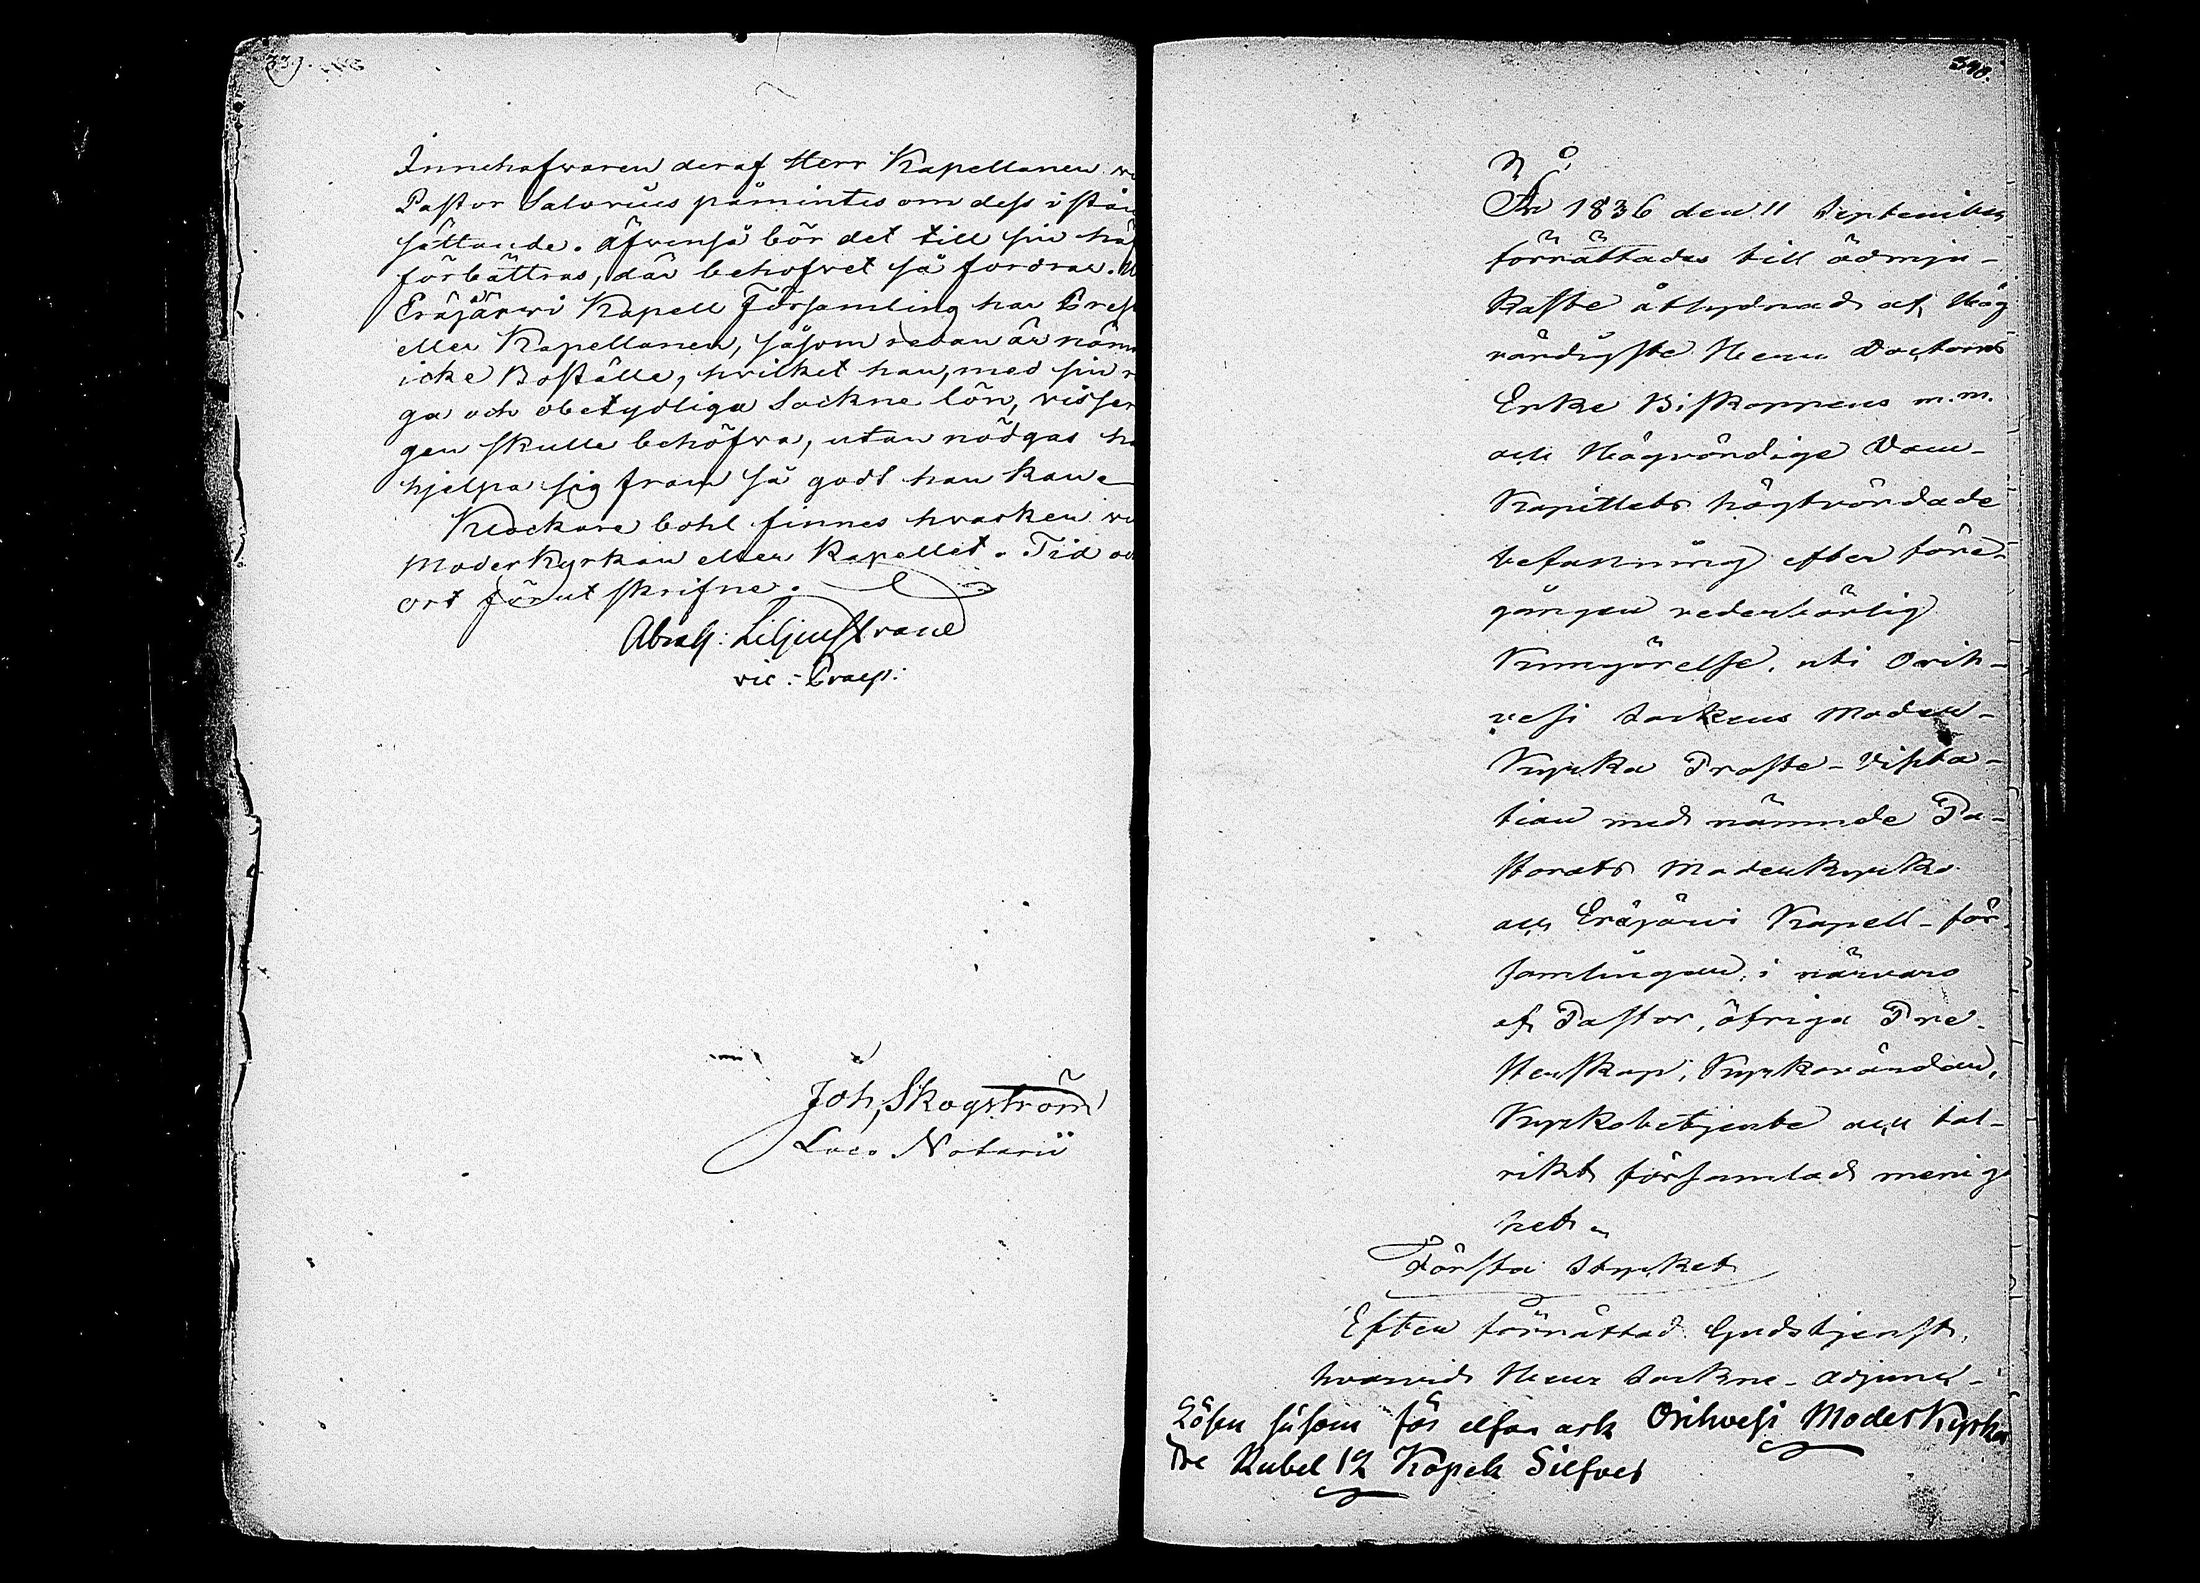 339.
Innehafvaren deraf Herr Kapellanen
Pastor Salovius påmintes om dess i stån
sättande. Äfvenså bör det till sin hä
förbättras, där behofvet så fordrar.
Eräjärwi Kapell Församling har Prest
eller Kapellanen, såsom redan är näm
icke Boställe, hvilket han, med sin r
ga och obetydliga Sockne lön, visser
gen skulle behöfva, utan nödgas ha
hjelpa sig fram så godt han kan.
Klockare bohl finnes hvarken
Moderkyrkan eller Kapellet. Tid oc
ort förut skrifne.
Abrah: Liljestrand
vic: Praep:
Joh, Skogström
Loco Notarii
340.
År 1836 den 11 September
förrättades till ödmju-
kaste åtlydnad af Hög
vördigste Herr Doctorns
Erke Biskoppens m.m.
och Högvördige Dom-
Kapitlets högtvördade
befallning efter före-
gången vederbörlig
Kungörelse, uti Orih-
vesi Sockens Moder-
Kyrka Proste-Visita-
tion med nämnde Pa-
storats Moderkyrko
och Eräjärvi Kapell-för-
samlingar, i närvaro
af Pastor, öfriga Pre-
sterskap, Kyrkovärdar,
Kyrkobetjente och tal-
rikt församlad menig
het.
Första Stycket
Efter förrättad Gudstjenst,
hvarvid Herr Sockne-Adjunct-
Lösen såsom för elfva ark Orihvesi Moderkyrka
Tre Rubel 12 Kopek Silfver